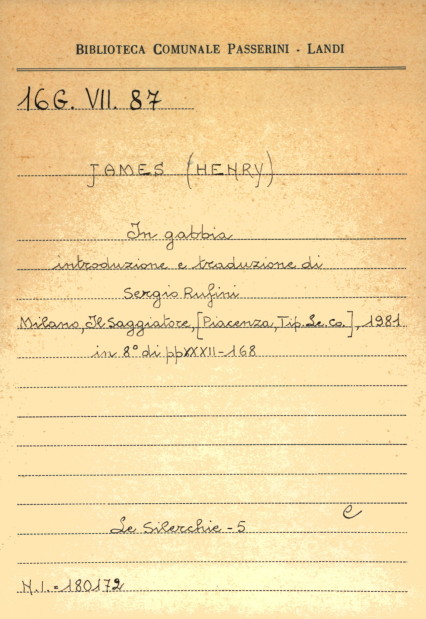 BIBLIOTECA COMUNALE PASSERINI - LANDI
16G. VII. 87
JAMES (HENRY)
In gabbia
introduzione e traduzione di
Sergio Rufini
Milano, Il Saggiatore, [Piacenza, Tip. Le. Co.], 1981
in 8° di pp XXXII-168
e
Le Silerchie - 5
N.I. = 180172